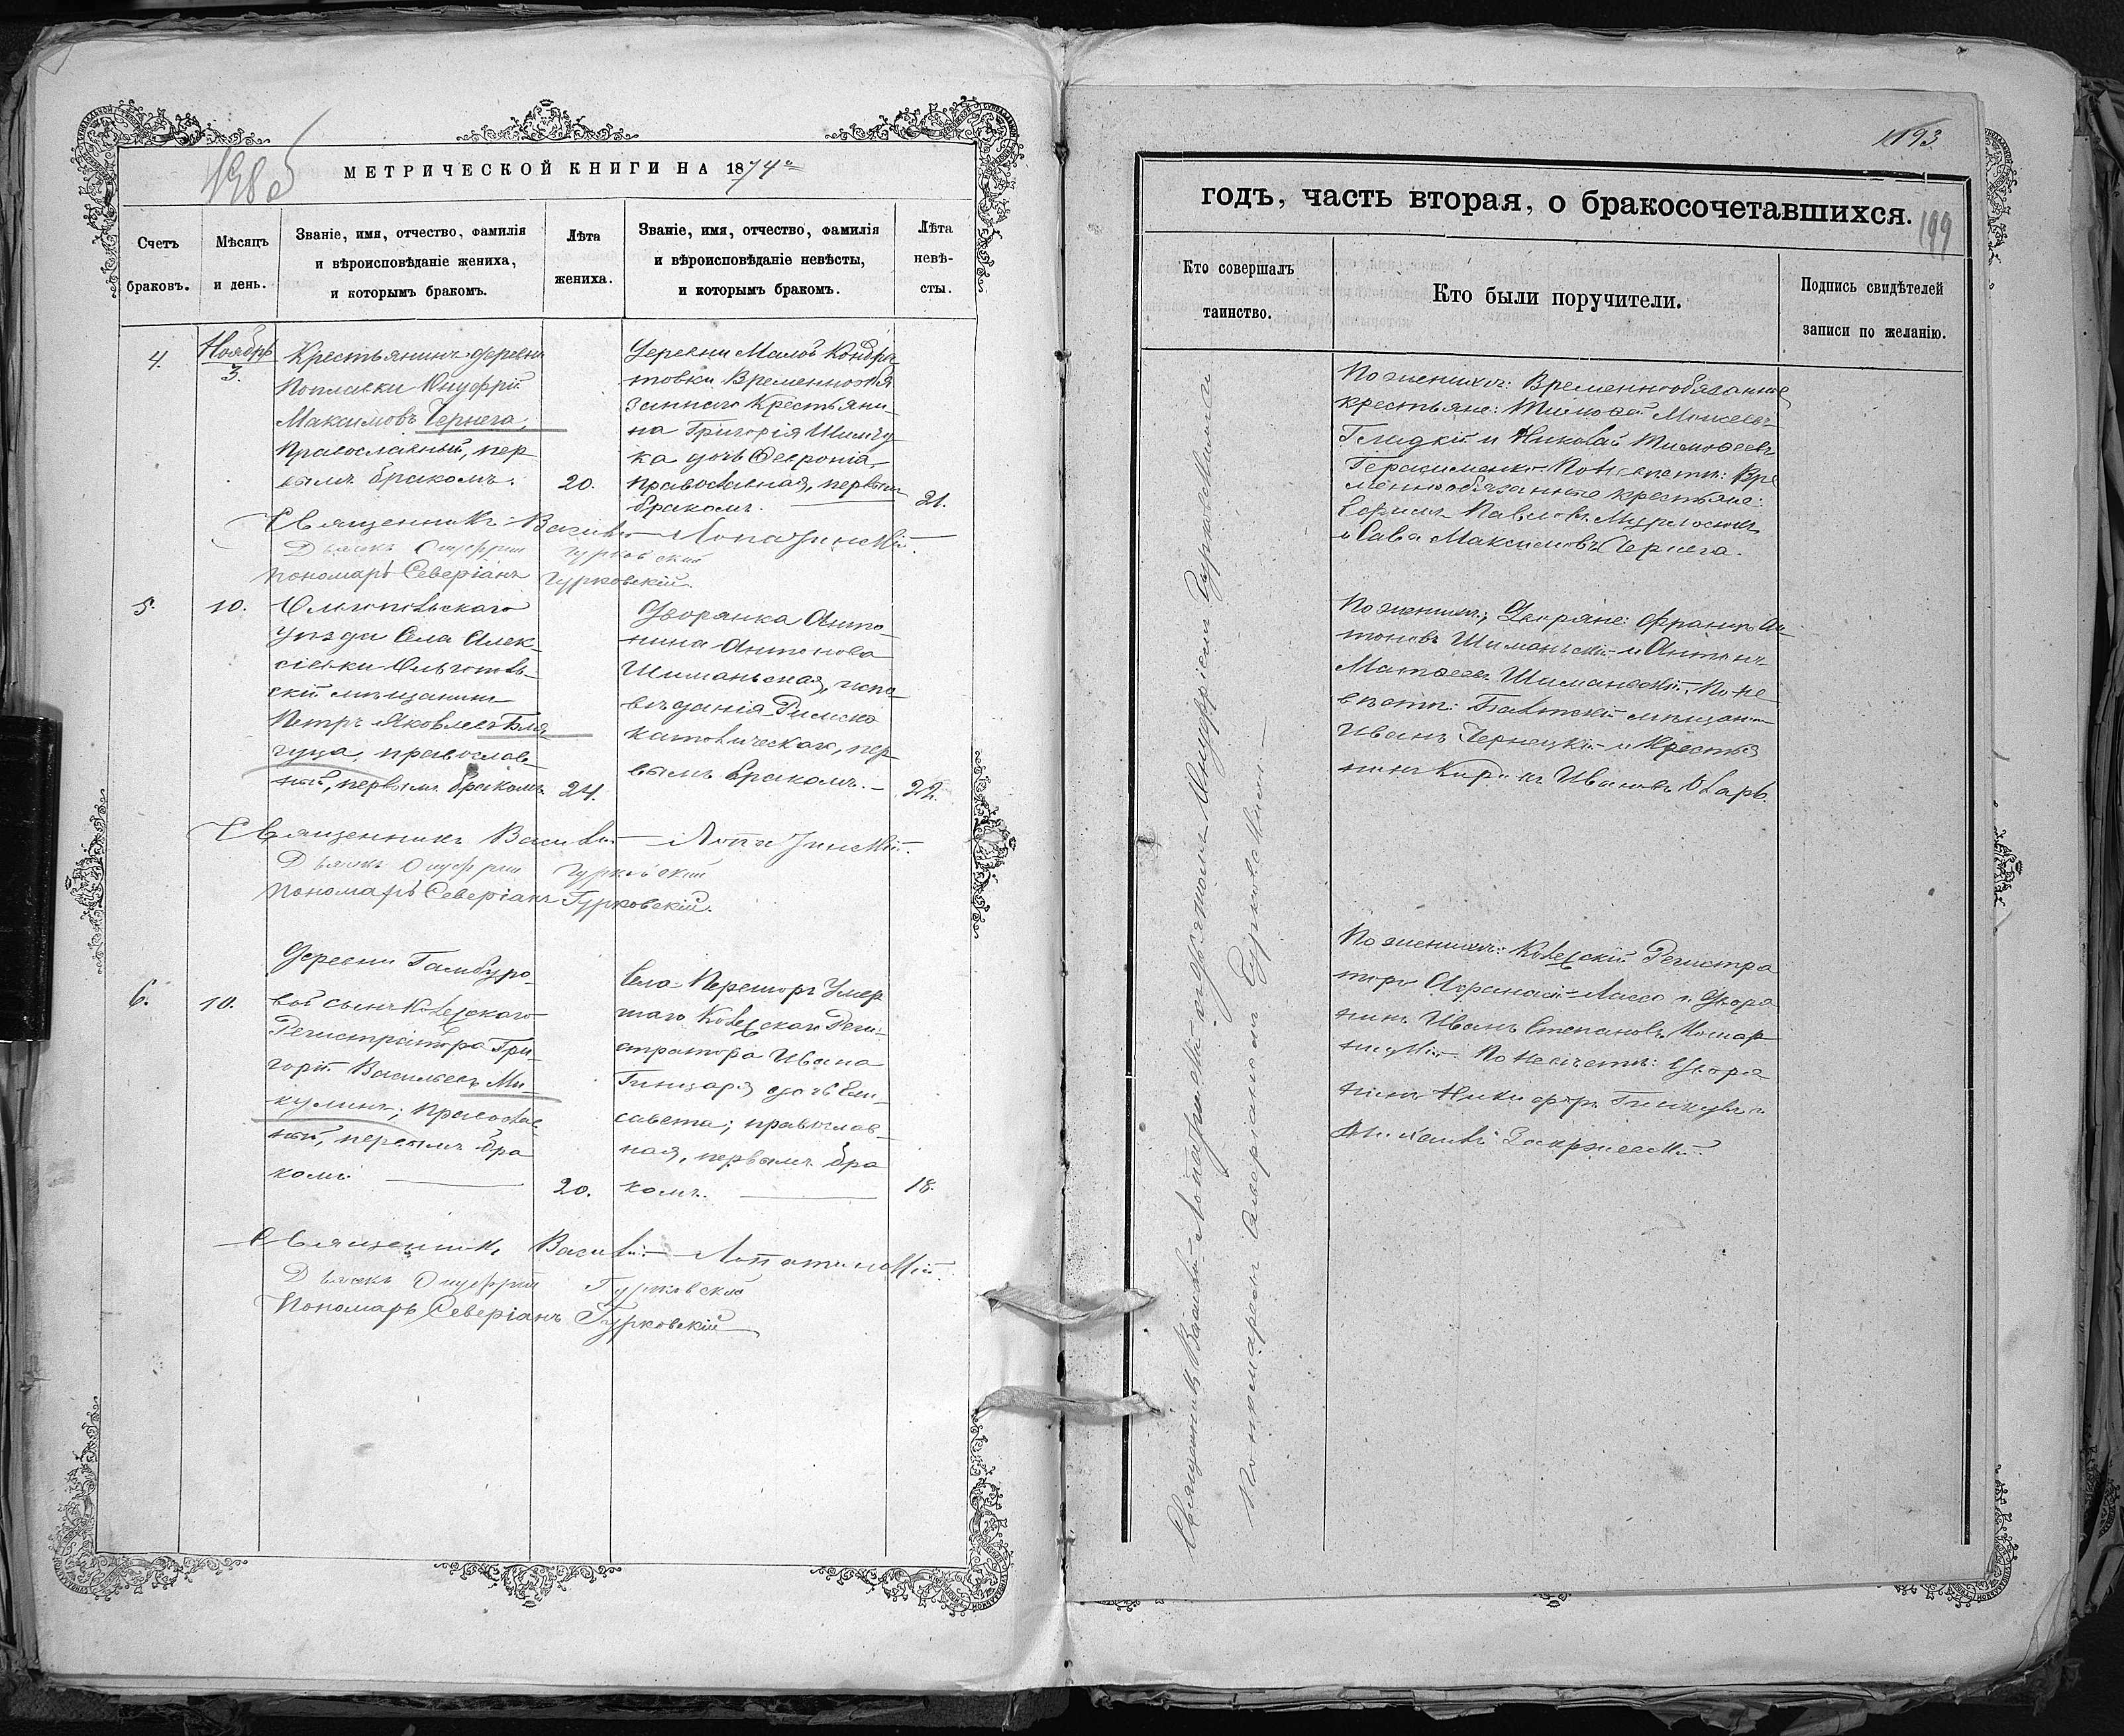 МЕТРИЧЕСКОЙ КНИГИ НА 1874й
Счетъ браковъ.
Мѣсяцъ и день.
Званіе, имя, отчество, фамилія
и вѣроисповѣданіе жениха,
и которымъ бракомъ.
Лѣта
жениха.
Званіе, имя, отчество, фамилія
и вѣроисповѣданіе невѣсты,
и которымъ бракомъ.
Лѣта
невѣ-
сты.
4.
Ноябрь
3.
Крестьянинъ деревни
Поплавки Онуфрій
Максимовъ Чернега,
Православный, пер
вымъ бракомъ.
20.
Деревни Малой Кондра
товки Временнообя
заннаго Крестьяни
на Григорія Шимчу
ка дочь Феѵронія,
православная, первымъ
бракомъ.
21.
Священникъ Василій Лопатинскій.
Дьячекъ Онуфрій Гурковскій
Пономарь Северіанъ Гурковскій.
5.
10.
Ольгопольскаго
уѣзда Села Алек-
сѣевки
скій мѣщанинъ
Петръ Яковлевъ
православ
ный, первымъ бракомъ.
24.
Дворянка Анто-
нина Антонова
Шиманьская, испо-
вѣданія Римско
католическаго, пер
вымъ бракомъ.
22.
Священникъ Василій Лопатинскій.
Дьячекъ Онуфрій Гурковскій
Пономарь Северіанъ Гурковскій.
6.
10.
Деревни Гамбуро-
вой сынъ Колежскаго
Регистратора Гри-
горій Васильевъ Ми-
кулинъ; православ
ный, первымъ бра
комъ.
20.
Села Перешоръ Умер
шаго Колежскаго Реги-
стратора Ивана
Гинцаря дочь Ели-
савета; православ-
ная, первымъ бра
комъ.
18.
Священникъ Василій Лопатинскій.
Дьячекъ Онуфрій Гурковскій
Пономарь Северіанъ Гурковскій
годъ, часть вторая, о бракосочетавшихся.
199
Кто совершалъ
таинство.
Кто были поручители.
Подпись свидѣтелей
записи по желанію.
Священникъ Василій Лопатинскій съ дьячкомъ Онуфріемъ Гурковскимъ и
Пономаремъ Северіаномъ Гурковскимъ.
По женихѣ: Временнообязанные
крестьяне: Тимофей Моисеевъ
Гладкій и Николай Тимофеевъ
Герасименко. По невѣстѣ: Вре
меннообязанные крестьяне:
Павловъ
и Сава Максимовъ Чернега.
По женихѣ; Дворяне: Францъ Ан
тоновъ Шиманьскій и Антонъ
Матвеевъ Шиманьскій. По не
вѣстѣ: Балтскій мѣщанинъ
Иванъ Чернецкій и Крестья
нинъ Ивановъ
По женихѣ: Колежскій Регистра
торъ Афанасій Лассо и Дворя
нинъ Иванъ Степановъ Комар
ницкій. По невѣстѣ: Дворя
нинъ Никифоръ